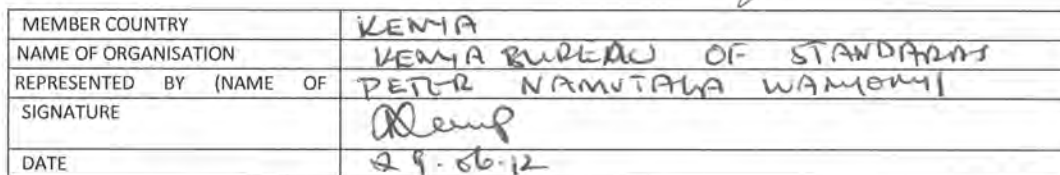 MEMBER COUNTRY KENYA
NAME OF ORGANISATION KENYA BUREAU OF STANDARDS
REPRESENTED BY (NAME OF PETER NAMUTALA WANYONYI
SIGNATURE
DATE 29.06.12